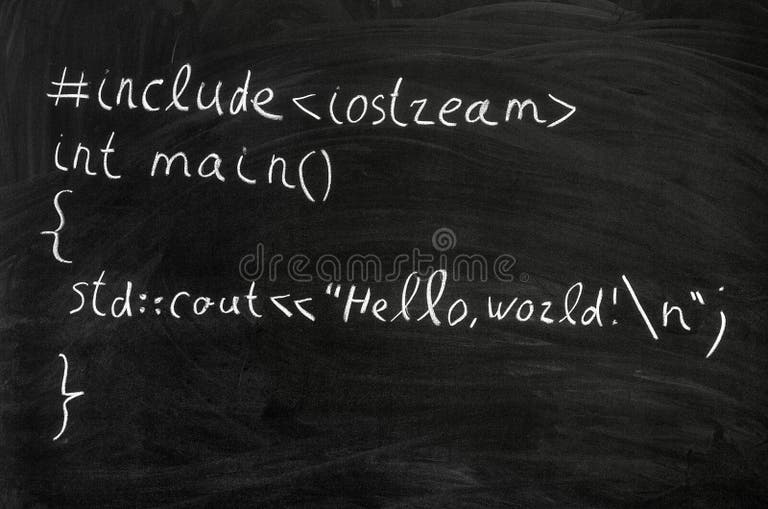 #include<iostream>
int main()
{
dreamstime
std::cout<<"Hello,world!\n";
}